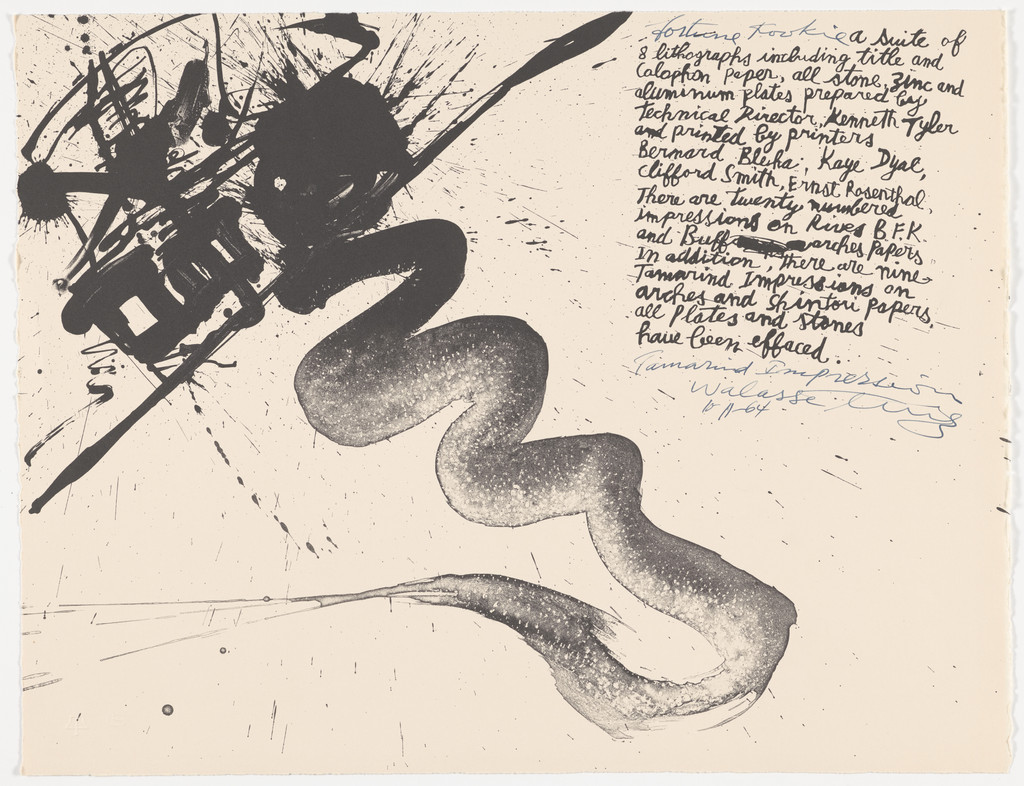 fortune Kookie a suite of
8 lithographs including title and
Colophon Paper, all stone, zinc and
aluminum plates prepared by
Technical Director, Kenneth Tyler
and printed by printers
Bernard Bleha; Kaye Dyal,
Clifford Smith, Ernst Rosenthal.
There are twenty numbered
impressions on Rives B.F.K.
and Buff arches Papers
In addition, There are nine-
Tamarind Impressions on
arches and Shintow papers,
all Plates and stones
have been effaced.
Tamarind Impression
Walasse Ting
64